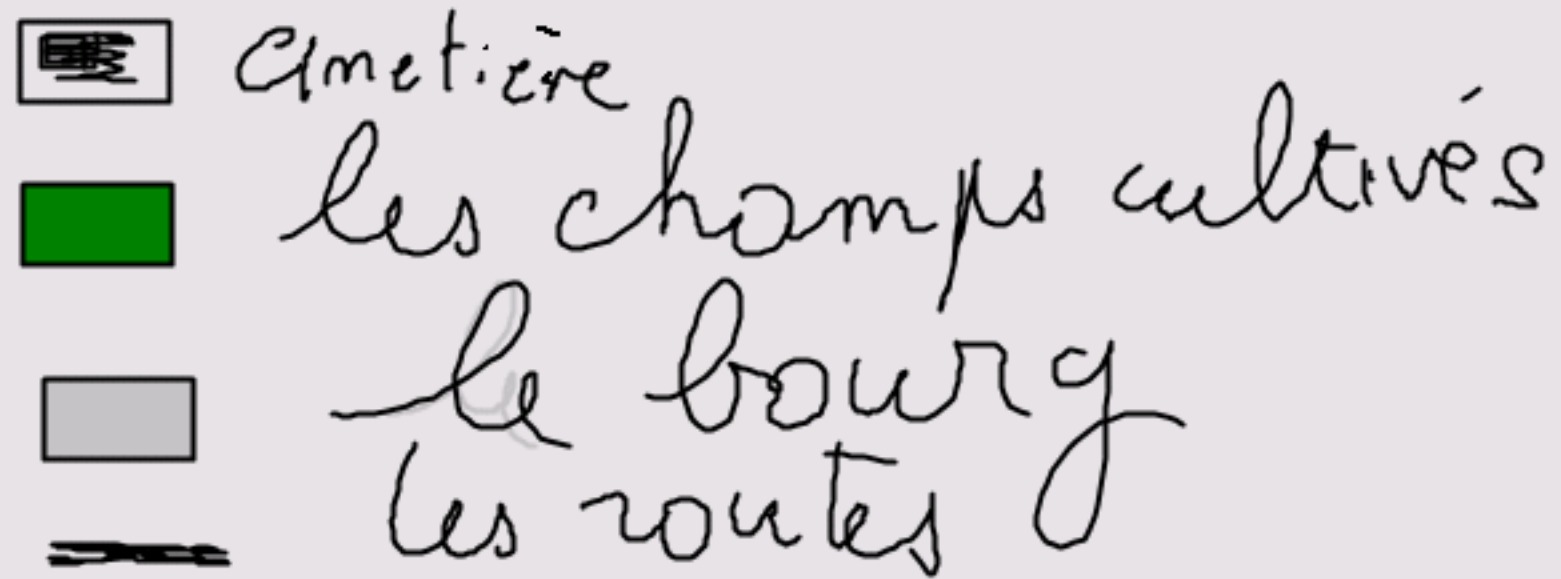 cimetière
les champs cultivés
le bourg
les routes